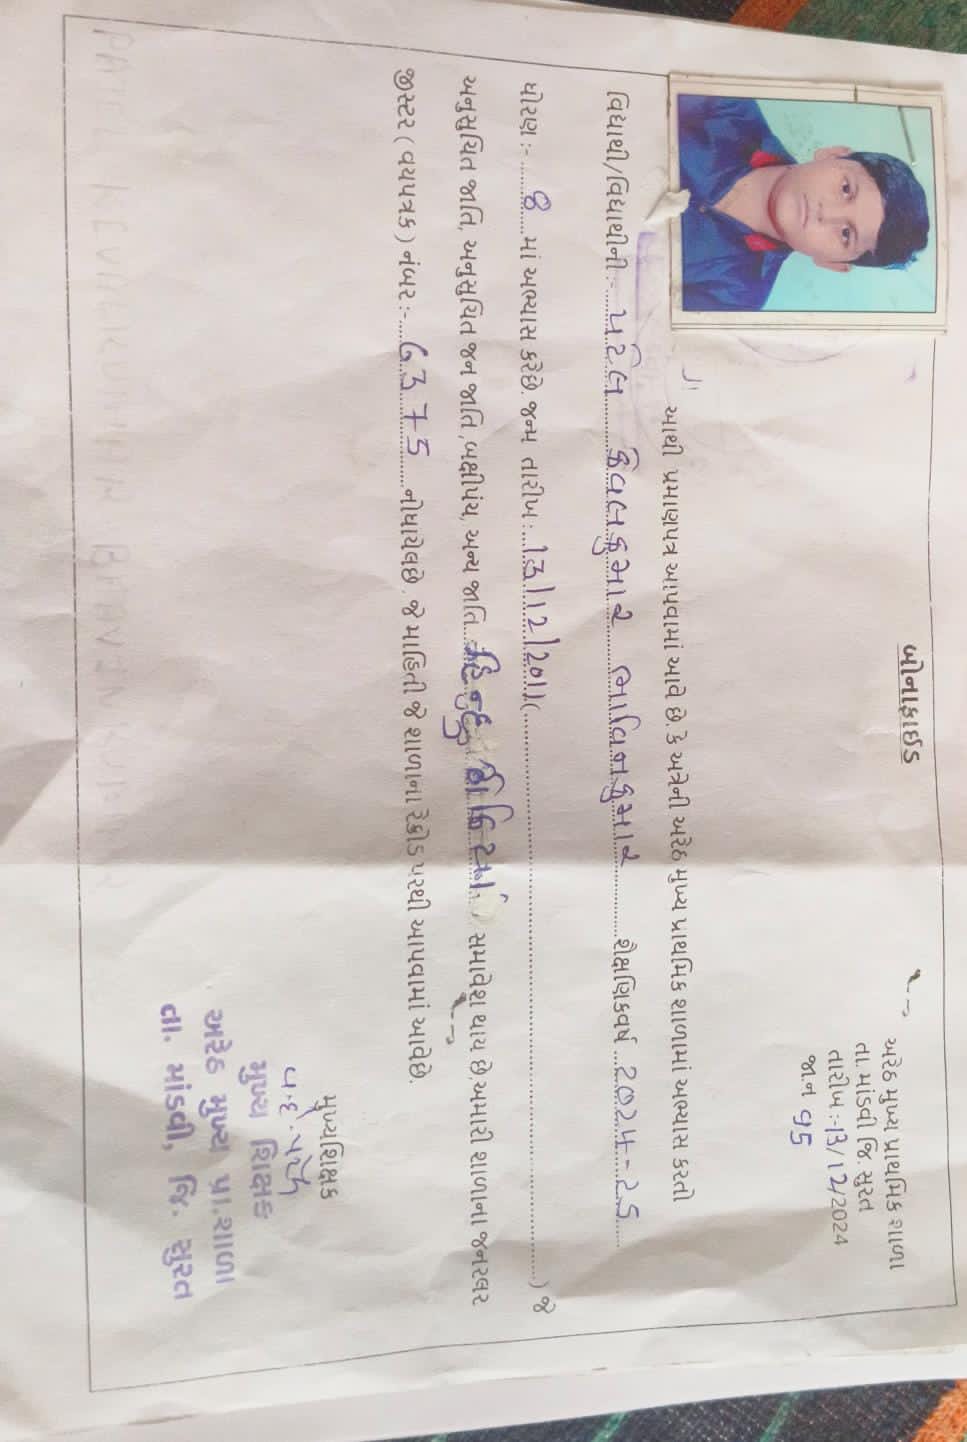 બોનાફાઈડ
અરેઠ મુખ્ય પ્રાથમિક શાળા
તા. માંડવી જિ. સુરત
તારીખ :-13/12/2024
જા.ન 95
આથી પ્રમાણપત્ર આપવામાં આવે છે. કે અત્રેની અરેઠ મુખ્ય પ્રાથમિક શાળામાં અભ્યાસ કરતી
વિધાથી/વિધાથીની :- પટેલ કેવલકુમાર ભાવિનકુમાર શૈક્ષણિકવર્ષ ..2024-25
ધોરણ :- 8 માં અભ્યાસ કરેછે. જન્મ તારીખ : 13/12/2011( ) જે
અનુસુચિત જાતિ, અનુસુચિત જન જાતિ ,બક્ષીપંચ, અન્ય જાતિ હિન્દુ સમાવેશ થાય છે.અમારી શાળાના જનરલર
જીસ્ટર ( વયપત્રક) નંબર :- 6375 નોધાયેલછે. જે માહિતી જે શાળાના રેકોડ પરથી આપવામાં આવેછે.
મુખ્યશિક્ષક
મુખ્ય શિક્ષક
અરેઠ મુખ્ય પ્રા.શાળા
તા. માંડવી, જિ. સુરત